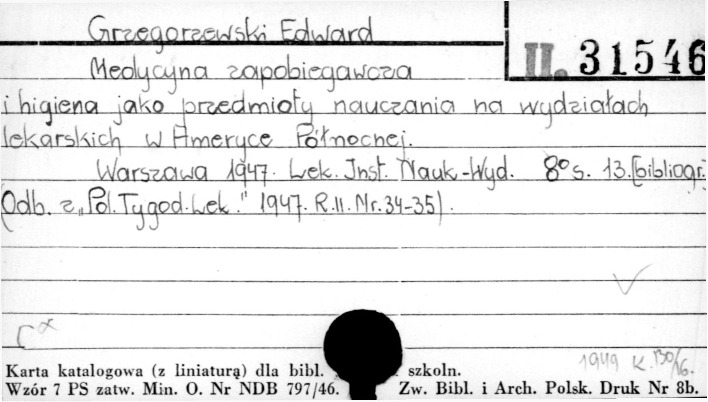 Grzegorzewski Edward
II. 31546
Medycyna zapobiegawcza
i higiena jako przedmioty nauczania na wydziałach
lekarskich w Ameryce Północnej.
Warszawa 1947. Lek. Inst. Nauk-Wyd. 8° s. 13. [bibliogr.]
(Odb. z „Pol. Tygod. Lek." 1947. R.II. Nr. 34-35).
1949 K. 130/16.
Karta katalogowa (z liniaturą) dla bibl. szkoln.
Wzór 7 PS zatw. Min. O. Nr NDB 797/46. Zw. Bibl. i Arch. Polsk. Druk Nr 8b.